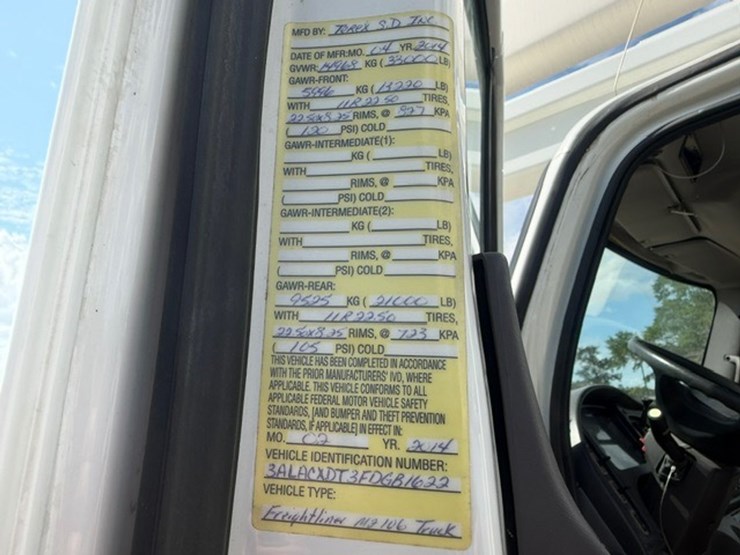 MFD BY: Terex S.D. Inc
DATE OF MFR:MO. 04 YR. 2014
GVWR: 14968 KG ( 33000 LB)
GAWR-FRONT:
5996 KG ( 13220 LB)
WITH 11R22.50 TIRES,
22.50x8.25 RIMS, @ 827 KPA
( 120 PSI) COLD
GAWR-INTERMEDIATE(1):
KG ( LB)
WITH TIRES,
RIMS, @ KPA
( PSI) COLD
GAWR-INTERMEDIATE(2):
KG ( LB)
WITH TIRES,
RIMS, @ KPA
( PSI) COLD
GAWR-REAR:
9525 KG ( 21000 LB)
WITH 11R22.50 TIRES,
22.50x8.25 RIMS, @ 723 KPA
( 105 PSI) COLD
THIS VEHICLE HAS BEEN COMPLETED IN ACCORDANCE
WITH THE PRIOR MANUFACTURERS' IVD, WHERE
APPLICABLE. THIS VEHICLE CONFORMS TO ALL
APPLICABLE FEDERAL MOTOR VEHICLE SAFETY
STANDARDS, [AND BUMPER AND THEFT PREVENTION
STANDARDS, IF APPLICABLE] IN EFFECT IN:
MO. 02 YR. 2014
VEHICLE IDENTIFICATION NUMBER:
3ALACXDT3FDGB1622
VEHICLE TYPE:
Freightliner M2106 Truck